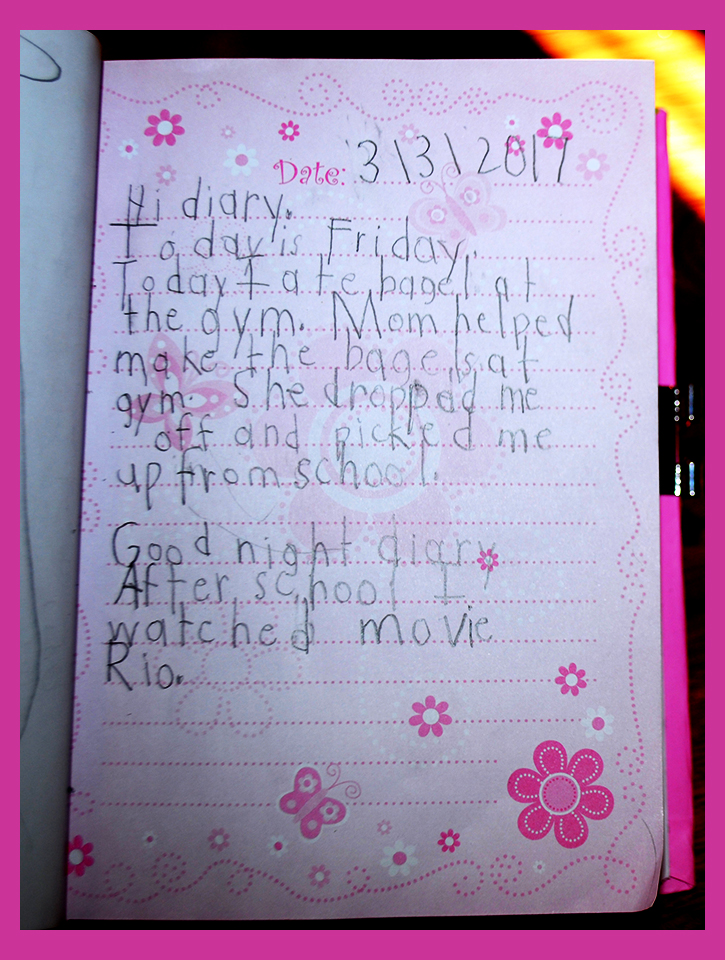 Date: 3\3\2017
Hi diary.
Today is Friday.
Today I ate bagel at
the gym. Mom helped
make the bagels at
gym. She dropped me
off and picked me
up from school.
Good night diary
After school I
watched movie
Rio.